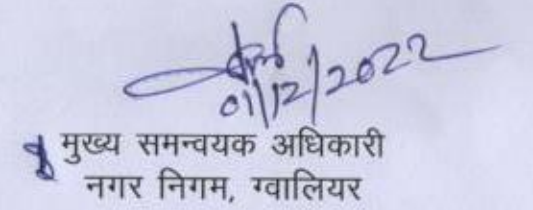 01/12/2022
मुख्य समन्वयक अधिकारी
नगर निगम, ग्वालियर